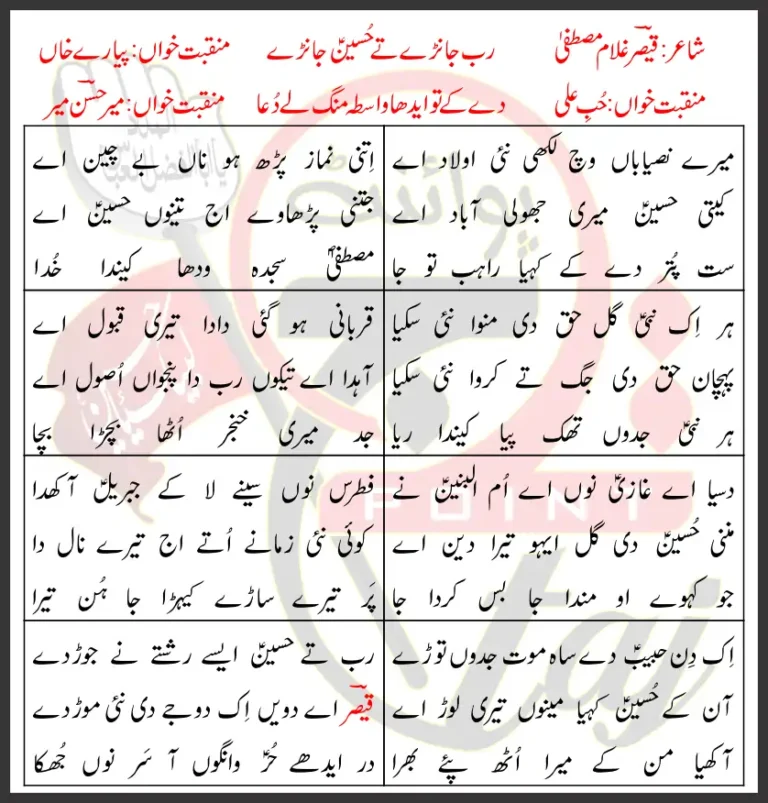 شاعر: قیصرؔ غلام مصطفیٰ رب جانڑے تے حُسینؑ جانڑے منقبت خواں: پیارے خاں
منقبت خواں: حُبِ علی دے کے تو ایدھا واسطہ منگ لے دُعا منقبت خواں: میر حسؔن میر
میرے نصیاباں وچ لکھی نئی اولاد اے
کیتی حسینؑ میری جھولی آباد اے
ست پُتر دے کے کہیا راہب تو جا
اِتنی نماز پڑھ ہو ناں بے چین اے
جتنی پڑھاوے اج تینوں حسینؑ اے
مصطفیٰؐ سجدہ ودھا کیندا خُدا
ہر اِک نبیؑ گل حق دی منوا نئی سکیا
پہچان حق دی جگ تے کروا نئی سکیا
ہر نبیؑ جدوں تھک پیا کیندا ریا
قربانی ہو گئی دادا تیری قبول اے
آہدا اے تیکوں رب دا پنجواں اُصول اے
جد میری خنجر اُٹھا بچڑا بچا
دسیا اے غازیؑ نوں اے اُم البنینؑ نے
مننی حُسینؑ دی گل ایہو تیرا دین اے
جو کہوے او مندا جا بس کردا جا
فطرس نوں سینے لا کے جبریلؑ آکھدا
کوئی نئی زمانے اُتے اج تیرے نال دا
پَر تیرے ساڑے کیہڑا جا ہُن تیرا
اِک دِن حبیبؑ دے ساہ موت جدوں توڑے
آن کے حُسینؑ کہیا مینوں تیری لوڑ اے
آکھیا من کے میرا اُٹھ پئے بھرا
رب تے حسینؑ ایسے رشتے نے جوڑدے
قیصرؔ اے دویں اِک دوجے دی نئی موڑدے
در ایدھے حُرؑ وانگوں آ سَر نوں جُھکا
POINT
taj